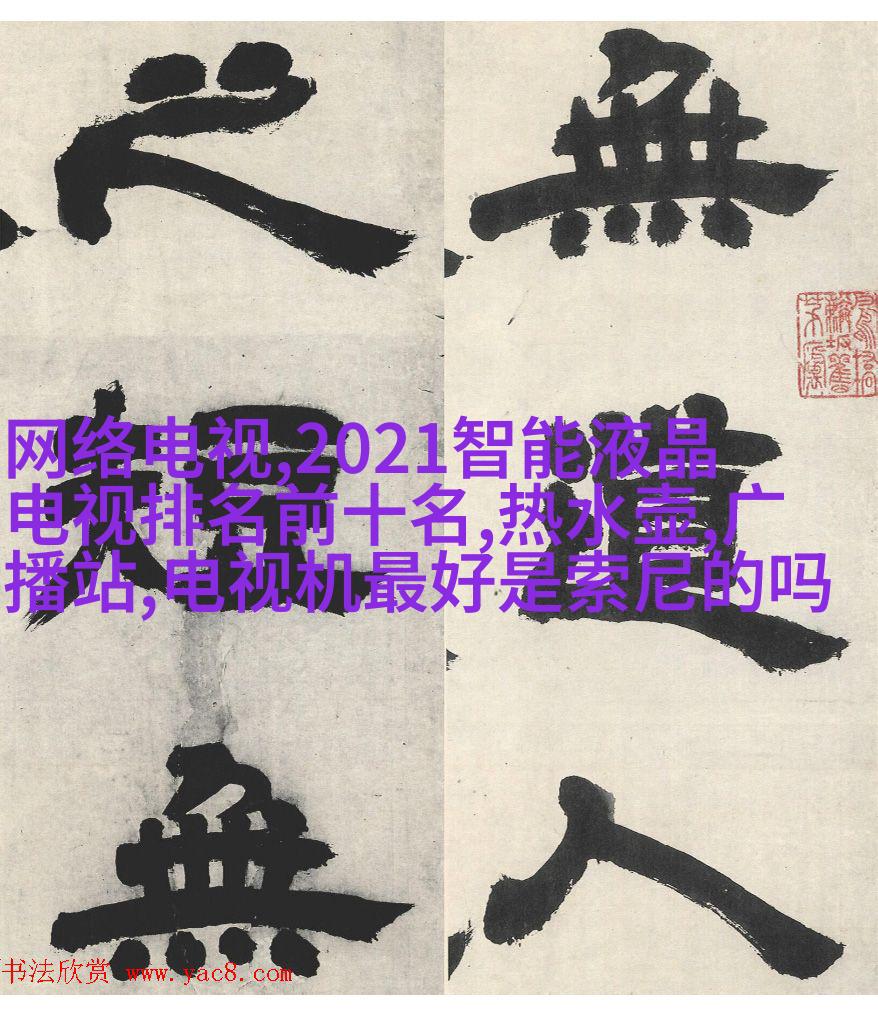 無
遺
人
之
規
無
网络电视,2021智能液晶
电视排名前十名,热水壶,广
播站,电视机最好是索尼的吗
书法欣赏 www.yac8.com